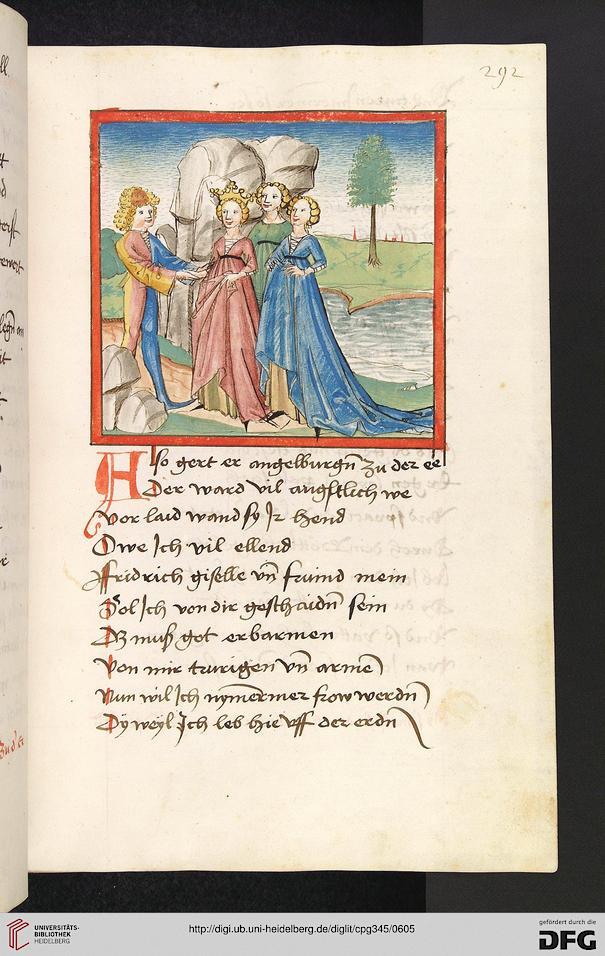 292
Also gert er angelburgn̄ zu der ee
Der ward vil angstlich we
Vor laid wand sy Jr hend
Owe Jch vil ellend
Fridrich giselle vn̄ frúnd mein
Sol Jch von dir geschaidn̄ sein
Dz muß got erbarmen
Von mir trurigen vn̄ armē
Nun wil Jch nymermer frow werdn̄
Dy weyl Jch leb hie vff der erdn̄
UNIVERSITÄTS-
BIBLIOTHEK
HEIDELBERG
http://digi.ub.uni-heidelberg.de/diglit/cpg345/0605
gefördert durch die
DFG